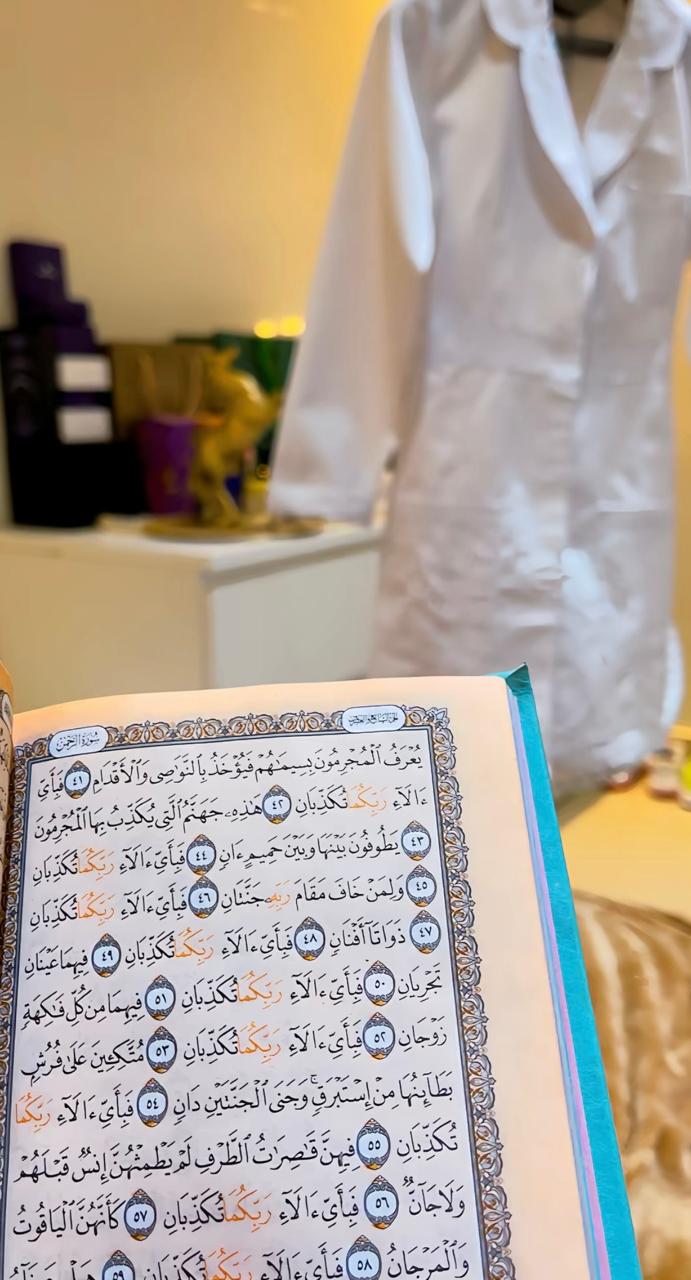 سُورَةُ الرَّحْمٰن
يُعْرَفُ ٱلْمُجْرِمُونَ بِسِيمَٰهُمْ فَيُؤْخَذُ بِٱلنَّوَٰصِى وَٱلْأَقْدَامِ ٤١ فَبِأَىِّ
ءَالَآءِ رَبِّكُمَا تُكَذِّبَانِ ٤٢ هَٰذِهِۦ جَهَنَّمُ ٱلَّتِى يُكَذِّبُ بِهَا ٱلْمُجْرِمُونَ
٤٣ يَطُوفُونَ بَيْنَهَا وَبَيْنَ حَمِيمٍ ءَانٍ ٤٤ فَبِأَىِّ ءَالَآءِ رَبِّكُمَا تُكَذِّبَانِ
٤٥ وَلِمَنْ خَافَ مَقَامَ رَبِّهِۦ جَنَّتَانِ ٤٦ فَبِأَىِّ ءَالَآءِ رَبِّكُمَا تُكَذِّبَانِ
٤٧ ذَوَاتَآ أَفْنَانٍ ٤٨ فَبِأَىِّ ءَالَآءِ رَبِّكُمَا تُكَذِّبَانِ ٤٩ فِيهِمَا عَيْنَانِ
تَجْرِيَانِ ٥٠ فَبِأَىِّ ءَالَآءِ رَبِّكُمَا تُكَذِّبَانِ ٥١ فِيهِمَا مِن كُلِّ فَٰكِهَةٍ
زَوْجَانِ ٥٢ فَبِأَىِّ ءَالَآءِ رَبِّكُمَا تُكَذِّبَانِ ٥٣ مُتَّكِـِٔينَ عَلَىٰ فُرُشٍۭ
بَطَآئِنُهَا مِنْ إِسْتَبْرَقٍ ۚ وَجَنَى ٱلْجَنَّتَيْنِ دَانٍ ٥٤ فَبِأَىِّ ءَالَآءِ رَبِّكُمَا
تُكَذِّبَانِ ٥٥ فِيهِنَّ قَٰصِرَٰتُ ٱلطَّرْفِ لَمْ يَطْمِثْهُنَّ إِنسٌ قَبْلَهُمْ
وَلَا جَآنٌّ ٥٦ فَبِأَىِّ ءَالَآءِ رَبِّكُمَا تُكَذِّبَانِ ٥٧ كَأَنَّهُنَّ ٱلْيَاقُوتُ
وَٱلْمَرْجَانُ ٥٨ فَبِأَىِّ ءَالَآءِ رَبِّكُمَا تُكَذِّبَانِ ٥٩